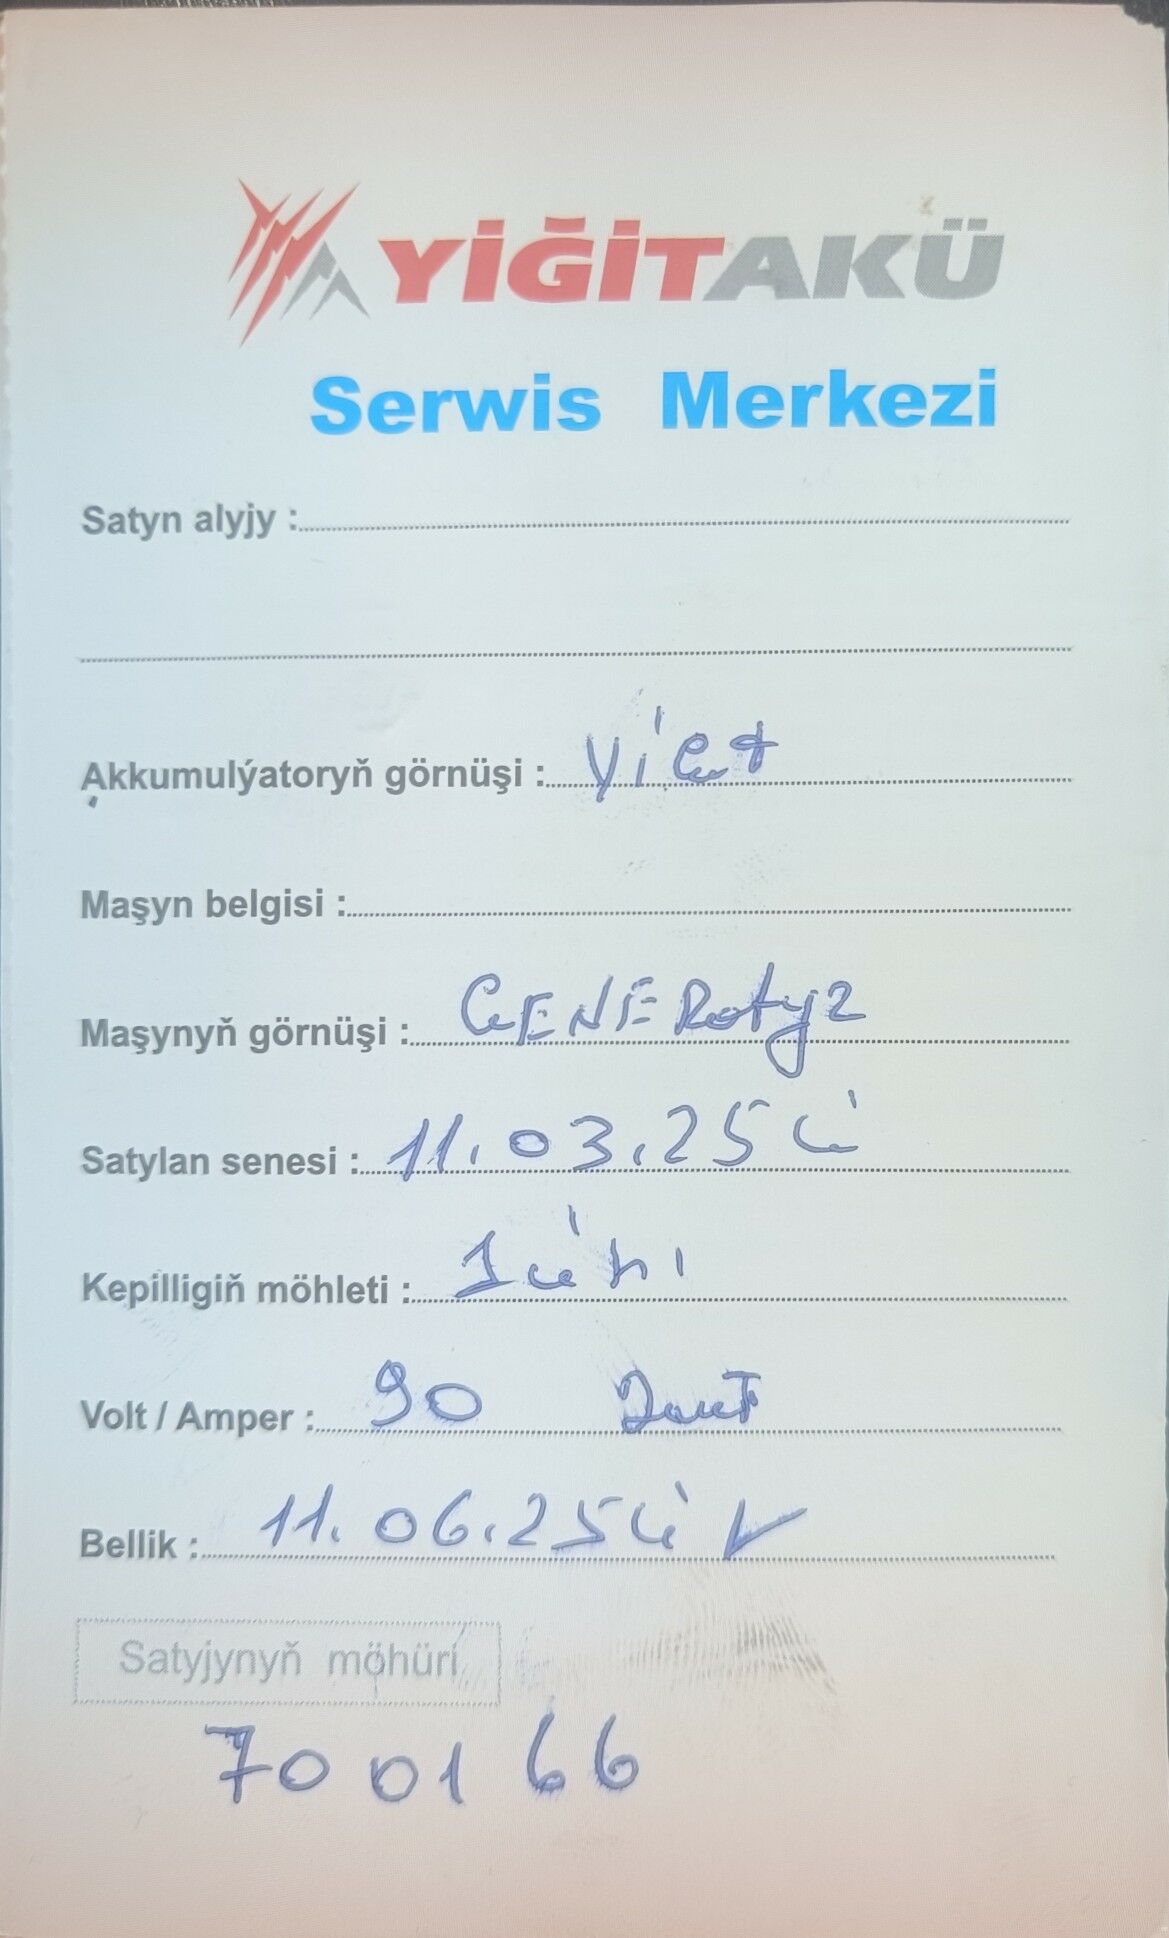 YİĞİTAKÜ
Serwis Merkezi
Satyn alyjy :
Akkumulýatoryň görnüşi :
Maşyn belgisi :
Maşynyň görnüşi :
Satylan senesi : 11.03.25
Kepilligiň möhleti :
Volt / Amper : 90
Bellik : 11.06.25
Satyjynyň möhüri
700166